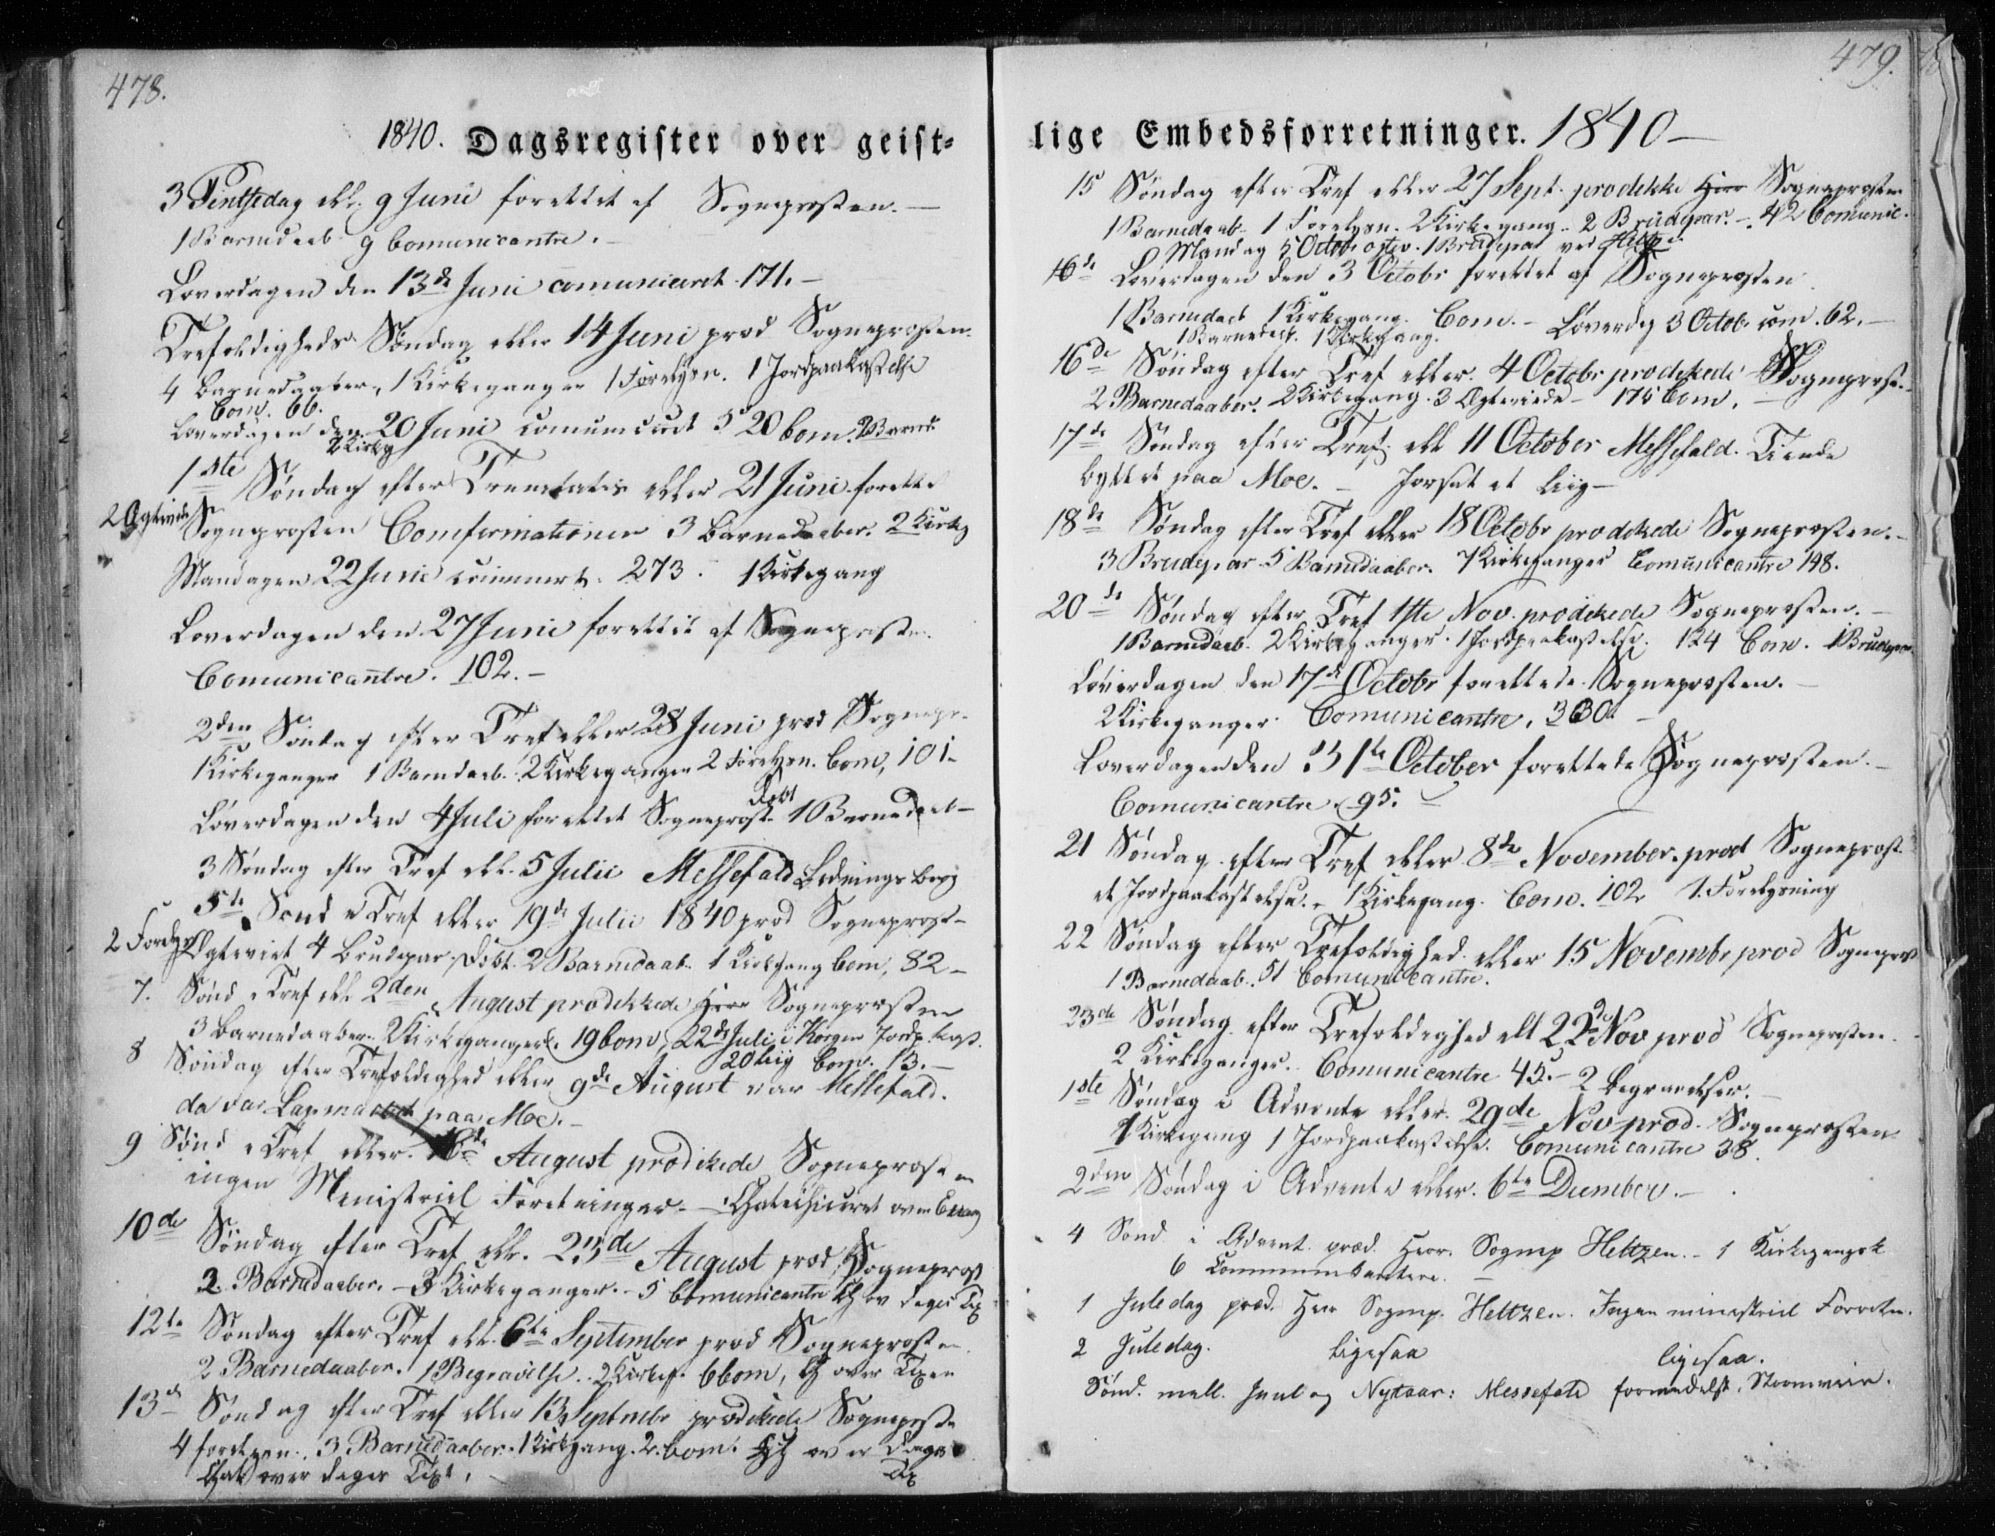 478.
1840. Dagsregister over geist-
3 Pintsedag ell. 9 Juni forettet af Sogneprosten. —
1 Barnedaab 9 Comunicantre. —
Loverdagen den 13de Juni comuniceret 171. —
Trefoldigheds Søndag eller 14 Juni prod Sogneprosten.
4 Barnedaaber, 1 Kirkeganger 1 Forelysn. 1 Jordpaakastelse
Com. 66.
Loverdagen den 20 Juni comuniceret 520 Com. 2 Barned.
2 Kirkeg
1ste Søndag efter Trenitatis eller 21 Juni forettet
2 Egteviede Sogneprosten Comfirmationen 3 Barnedaaber. 2 Kirkeg
Mandagen 22 Juni 273. 1 Kirkegang
Loverdagen den 27 Juni forettet af Sogneprosten.
Comunicantre. 102. —
2den Søndag efter Tref eller 28 Juni prod Sognepr.
1 Kirkeganger 1 Barndaab. 2 Kirkeganger 2 Forelysn. Com, 101 —
Døbt
Løverdagen den 4 Juli forettet Sogneprost 1 Barnedaab —
3 Søndag efter Tref ell. 5 Julii Messefald
5te Sond e Tref eller 19de Julii 1840 prod Sogneprost —
2 Forelys Egteviet 4 Brudepar, Døbt. 2 Barnedaab 1 Kirkgang Com, 82 —
7. Sønd e Tref ell 2den August prodekkede Herr Sogneprosten
3 Barnedaaber 2 Kirkeganger. 19 Com, 22de Juli i Korgen Jordp.kast.
20 Liig Com. 13. —
8 Søndag efter Trefoldighed eller 9de August var Messefald.
da var paa Moe. —
9 Sønd e Tref eller 16de August prodekede Sogneprosten
ingen Menistriel Foretninger. —
10de Søndag efter Tref ell. 23de August prod Sogneprost
2 Barnedaaber. — 3 Kirkeganger. — 5 Comunicantre over dagens Tex
12te Søndag efter Tref ell. 6te September prod Sogneprosten
2 Barnedaaber. 1 Begravelse. 2 Kirkeg. 6 Com, over Texen
13de Søndag efter Tref eller 13 Septmbr prodekede Sogneprosten
4 forelysn. 3 Barnedaaber. 1 Kirkgang. 2. Com. over dagens
over dages Text. Tex
479.
lige Embedsforretninger. 1840 —
15 Søndag efter Tref eller 27 Sept. prodekke Herr Sogneprosten
1 Barnedaab. 1 Forelysn. 2 Kirkegang. 2 Brudepar. — 42 Comunic.
Mandag 5 Octobr 1 Brudepar ved
16de Loverdagen den 3 Octobr forettet af Sogneprosten
1 Barnedaab 1 Kirkegang. Com. — Løverdag 3 Octob. com. 62. —
1 Barnedaab. 1 Kirkegang.
16de Søndag efter Tref eller. 4 Octobr prodekede Sogneprost.
2 Barnedaaber. 2 Kirkegang. 3 Egteviede — 175 Com. —
17de Søndag efter Tref. ell 11 October Messefald. Tiende
bytt et paa Moe. — Jorsat et Liig —
18de Søndag efter Tref eller 18 Octobr prodekede Sogneprosten. —
3 Brudepar 5 Barnedaaber. 7 Kirkeganger Comunicantre 148.
20de Søndag efter Tref 1ste Nov. prodekede Sogneprosten. —
1 Barnedaab. 2 Kirkeganger. 1 Jordpaakastelse. 124 Com. 1 Brudepar
Løverdagen den 17de Octobr forettede Sogneprosten. —
2 Kirkeganger. Comunicantre. 330. —
Loverdagen den 31te October forettede Sogneprosten. —
Comunicantre 95. —
21 Søndag efter Tref eller 8de November. prod Sogneprost
et Jordpaakastelse. — 1 Kirkegang. Com. 102 1. Forelysning
22 Søndag efter Trefoldighed. eller 15 Novembr prod Sogneprost
1 Barnedaab. 51 Comunicantre.
23de Søndag efter Trefoldighed ell 22 Nov prod Sogneprosten.
2 Kirkeganger. Comunicantre 45. — 2 Begravelser. —
1ste Søndag i Advente eller. 29de Nov prod. Sogneprosten
1 Kirkegang 1 Jordpaakastelse. Comunicantre 38.
2den Søndag i Advente eller. 6te Dcember. —
4 Sønd. i Advent. præd. Herr. Sognep Heltzen. — 1 Kirkegangsk
6 Communikantere. —
1 Juledag præd. Herr Sognp. Heltzen. Ingen ministriel Forretn.
2 Juledag. ligesaa ligesaa.
Sønd. mell. Juul og Nytaar: Messefald formedelst. Stormveir.